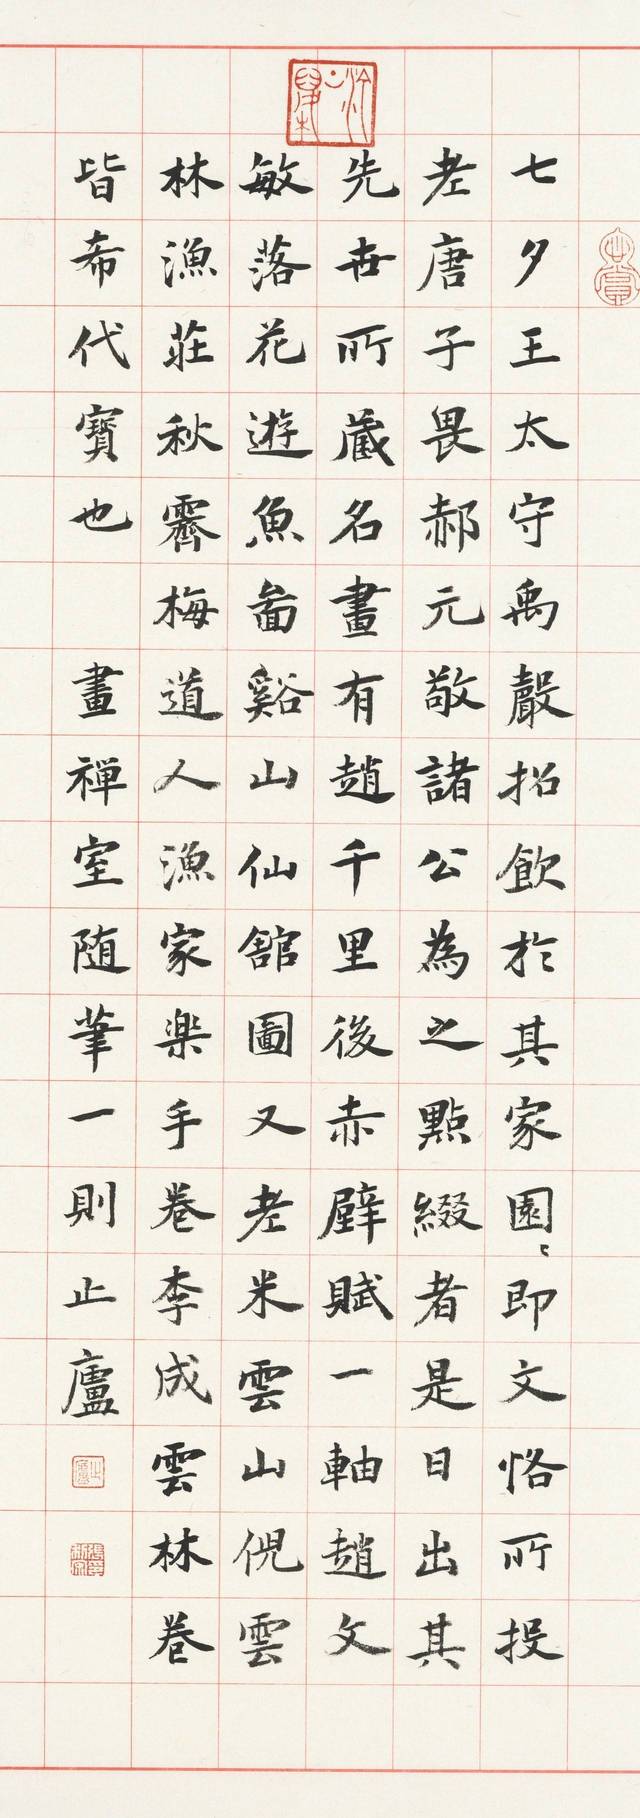 七夕王太守禹聲招飲於其家園〻即文恪所投
老唐子畏郝元敬諸公為之點綴者是日出其
先世所藏名畫有趙千里後赤壁賦一軸趙文
敏落花遊魚啚谿山仙館圖又老米雲山倪雲
林漁莊秋霽梅道人漁家樂手卷李成雲林卷
皆希代寶也 畫禪室随筆一則止廬
止廬